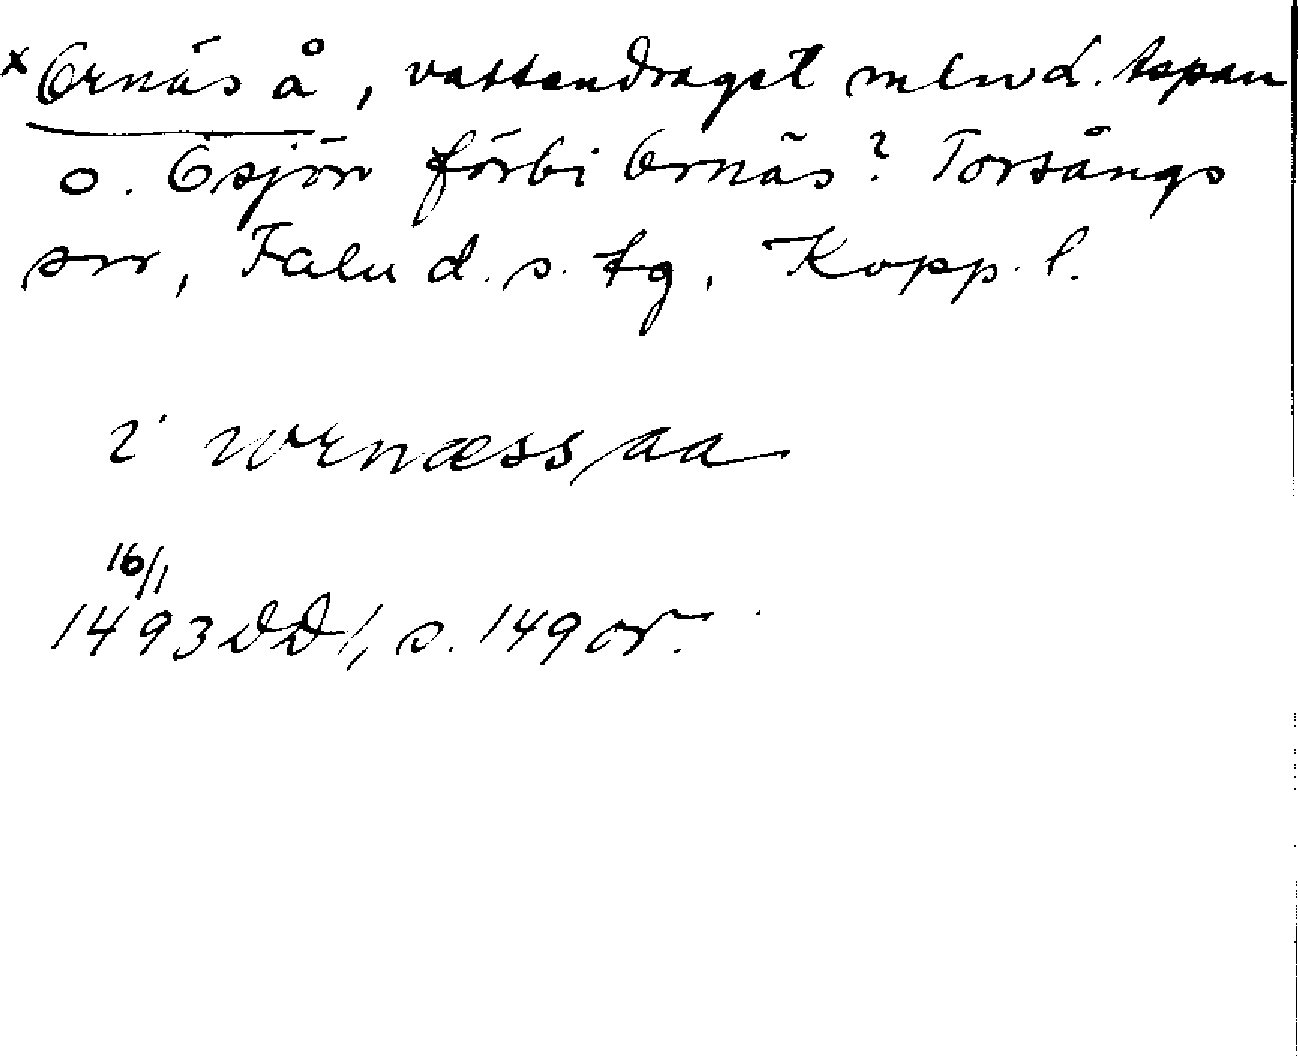 x Ornäs å, vattendraget mellan d. Aspan
o. Ösjön förbi Ornäs? Torsångs
sn, Falu d.s. tg, Kopp. l.
i wrnæss aa
16/1
1493 DD 1, s. 149 or.